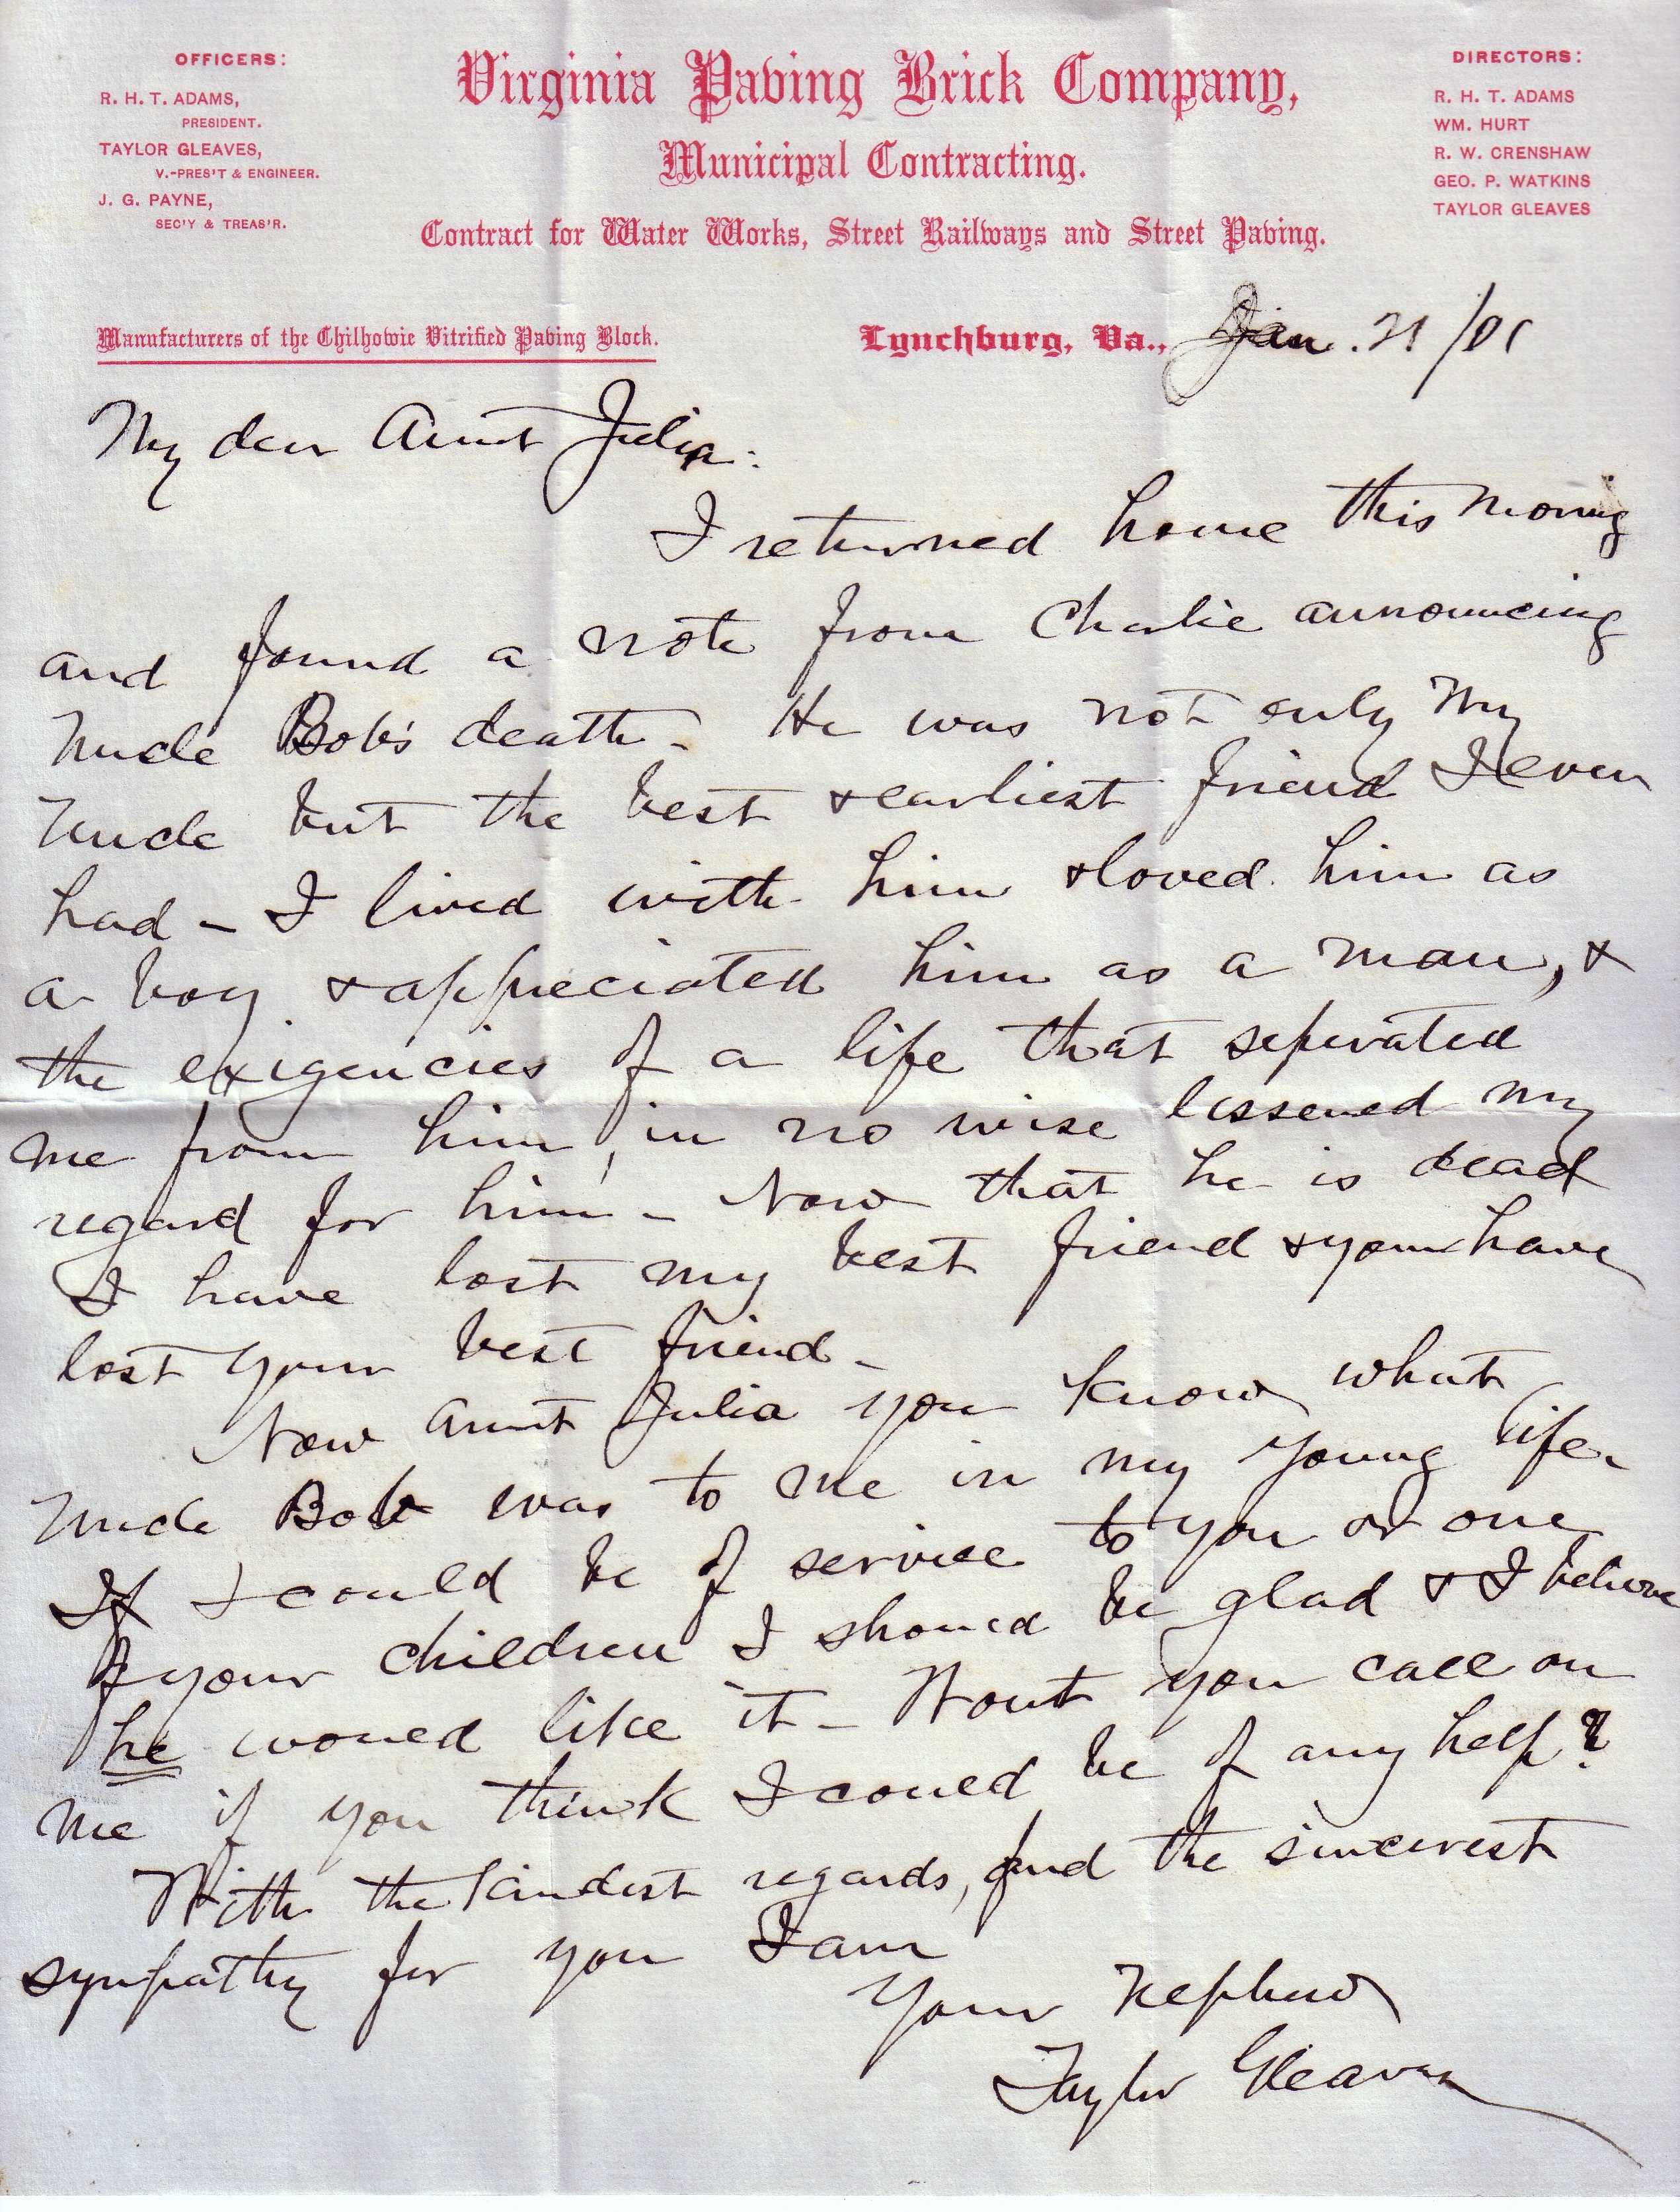 OFFICERS:
R. H. T. ADAMS,
PRESIDENT.
TAYLOR GLEAVES,
V.-PRES'T & ENGINEER.
J. G. PAYNE,
SEC'Y & TREAS'R.
Virginia Paving Brick Company,
Municipal Contracting.
Contract for Water Works, Street Railways and Street Paving.
DIRECTORS:
R. H. T. ADAMS
WM. HURT
R. W. CRENSHAW
GEO. P. WATKINS
TAYLOR GLEAVES
Manufacturers of the Chilhowie Vitrified Paving Block.
Lynchburg, Va., Jan. 21
My dear Aunt Julia:
I returned home this morning
and found a note from Charlie announcing
Uncle Bob's death - He was not only my
Uncle but the best & earliest friend I ever
had - I lived with him & loved him as
a boy & appreciated him as a man, &
the exigencies of a life that seperated
me from him, in no wise lessened my
regard for him - Now that he is dead
I have lost my best friend & you have
lost your best friend -
Now Aunt Julia you know what
Uncle Bob was to me in my young life.
If I could be of service to you or one
of your children I should be glad & I believe
he would like it - Wont you call on
me if you think I could be of any help?
With the kindest regards, and the sincerest
sympathy for you I am
Your Nephew
Taylor Gleaves